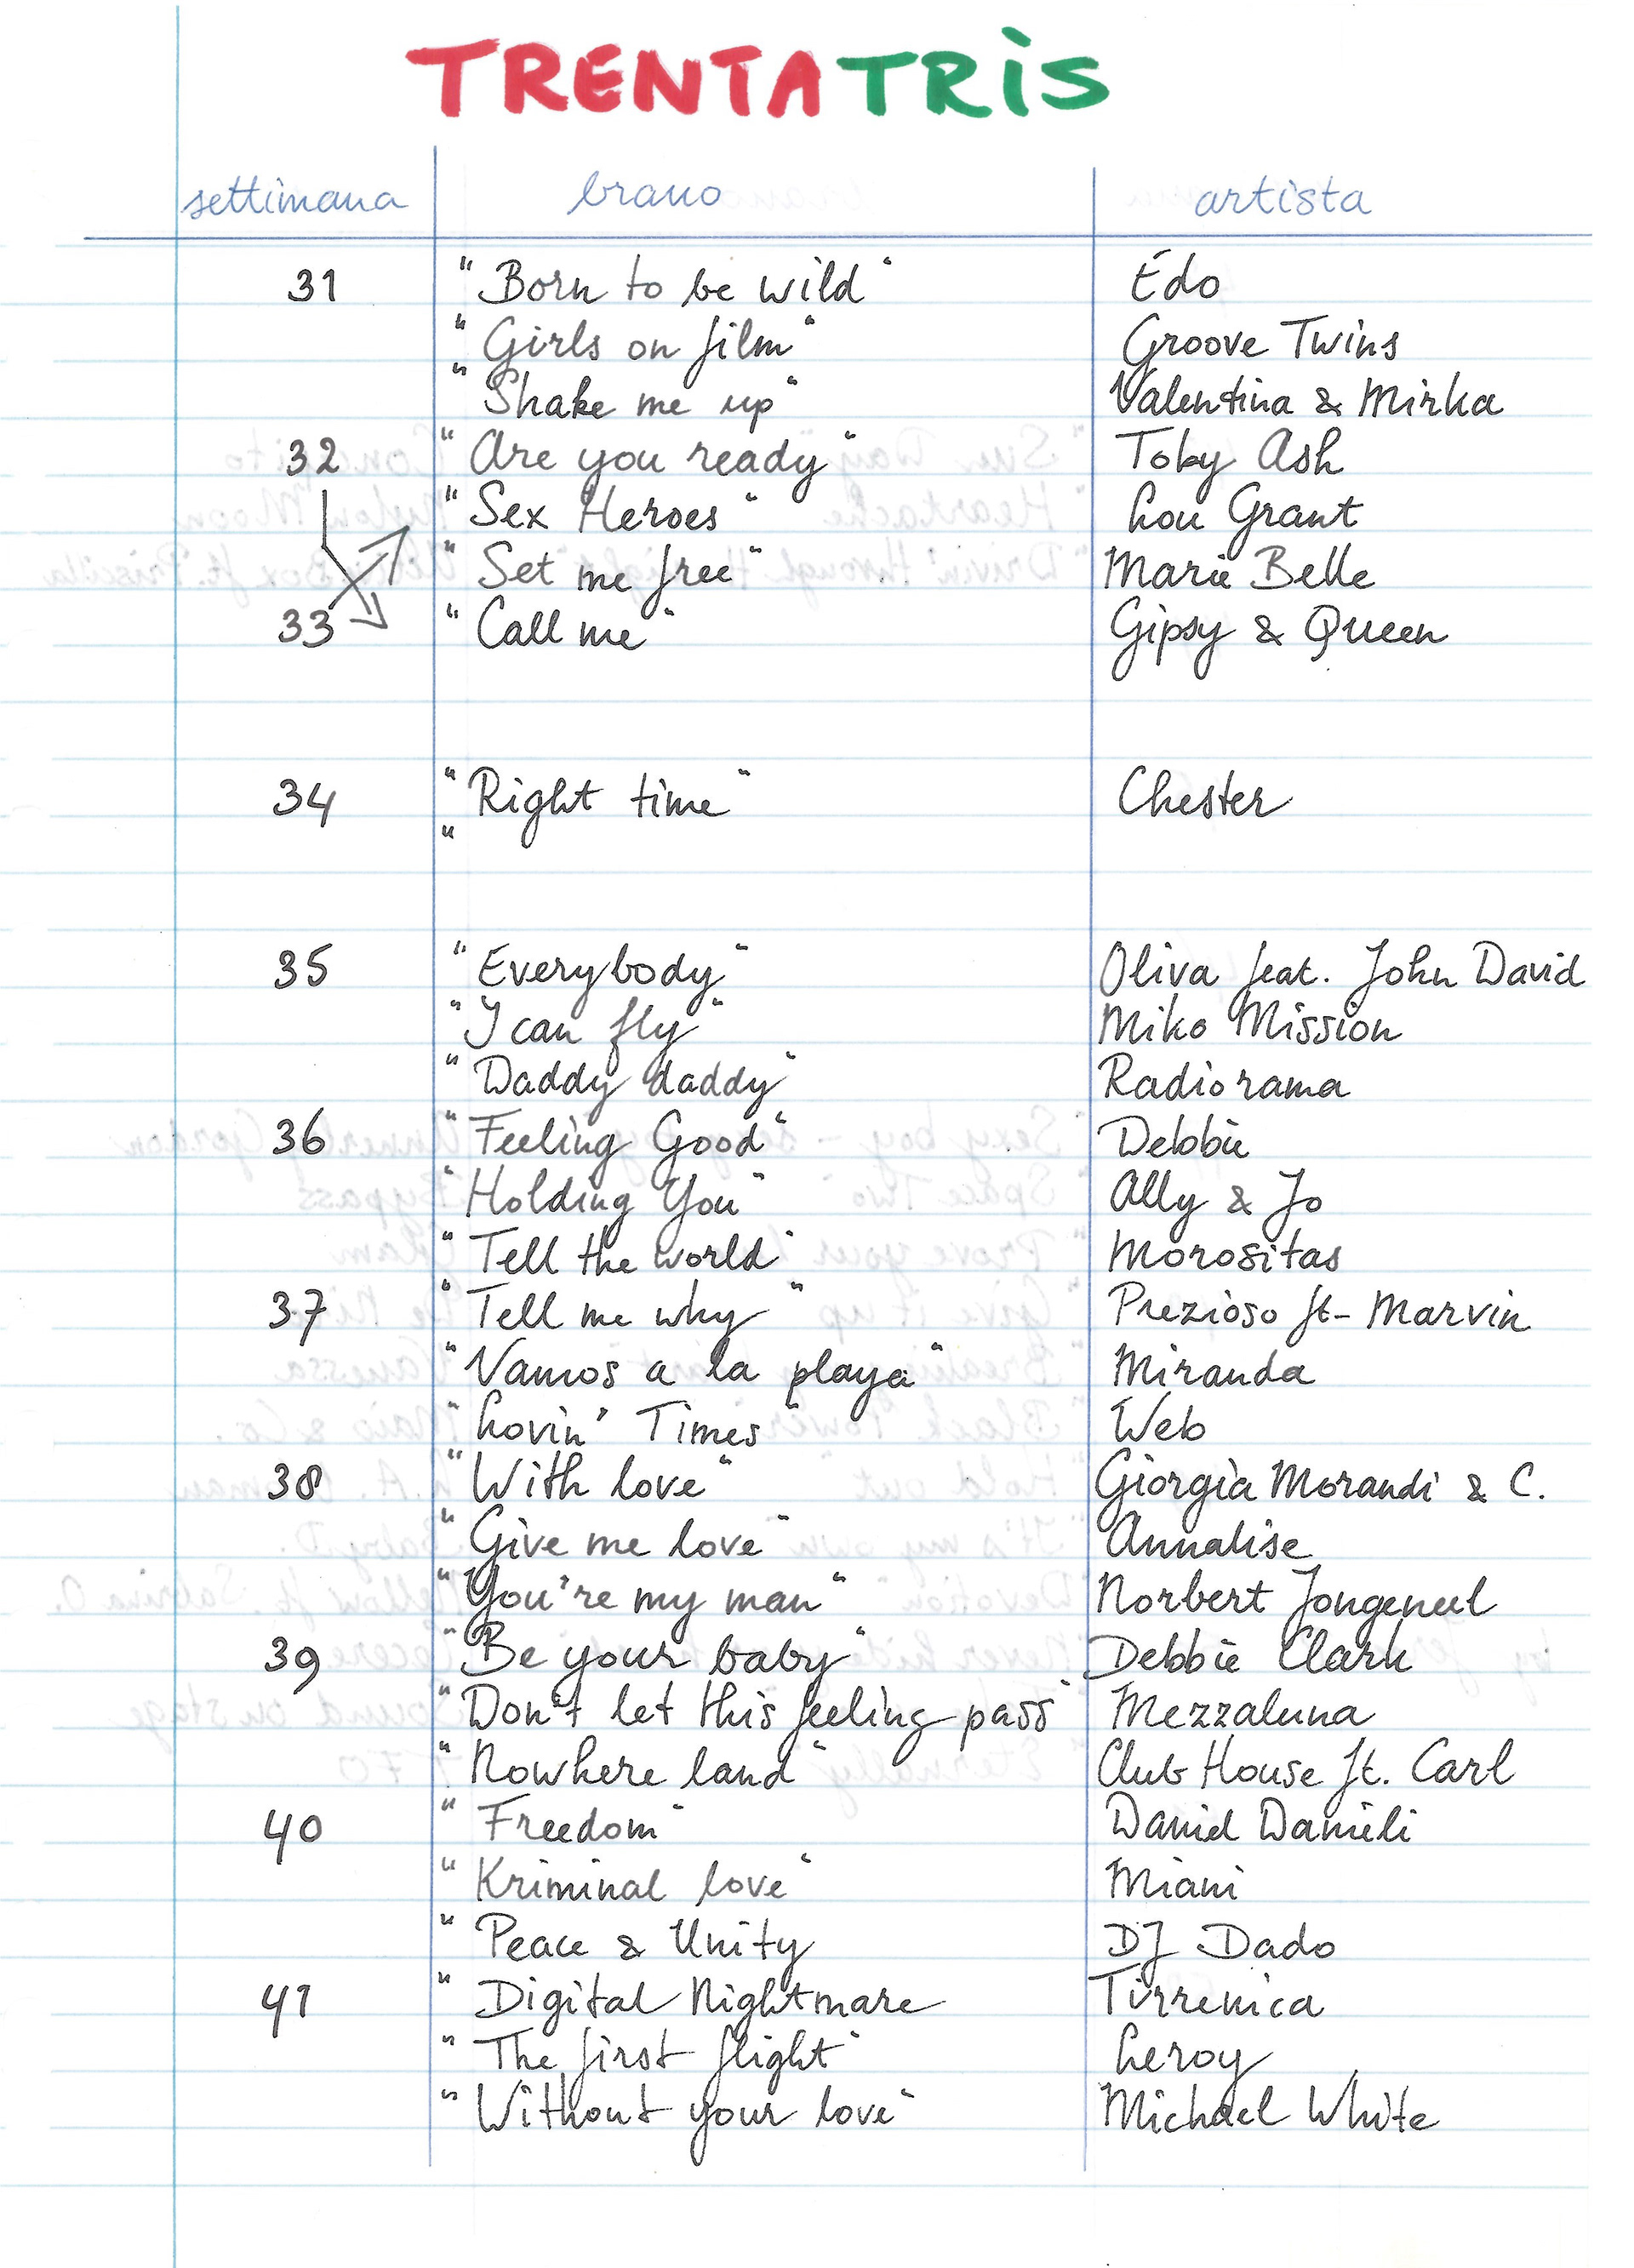 TRENTATRIS
settimana brano artista
31 "Born to be wild" Edo
"Girls on film" Groove Twins
"Shake me up" Valentina & Mirka
32 "Are you ready" Toby Ash
"Sex Heroes" Lou Grant
"Set me free" Marie Belle
33 "Call me" Gipsy & Queen
34 "Right time" Chester
"
35 "Everybody" Oliva feat. John David
"I can fly" Miko Mission
"Daddy daddy" Radiorama
36 "Feeling Good" Debbie
"Holding You" Ally & Jo
"Tell the world" Morositas
37 "Tell me why" Prezioso ft- Marvin
"Vamos a la playa" Miranda
"Lovin' Times" Web
38 "With love" Giorgia Morandi & C.
"Give me love" Annalise
"You're my man" Norbert Jongeneel
39 "Be your baby" Debbie Clark
"Don't let this feeling pass" Mezzaluna
"Nowhere land" Club House ft. Carl
40 "Freedom" David Danieli
"Kriminal love" Miani
"Peace & Unity DJ Dado
41 "Digital Nightmare Tirrenica
"The first flight" Leroy
"Without your love" Michael White